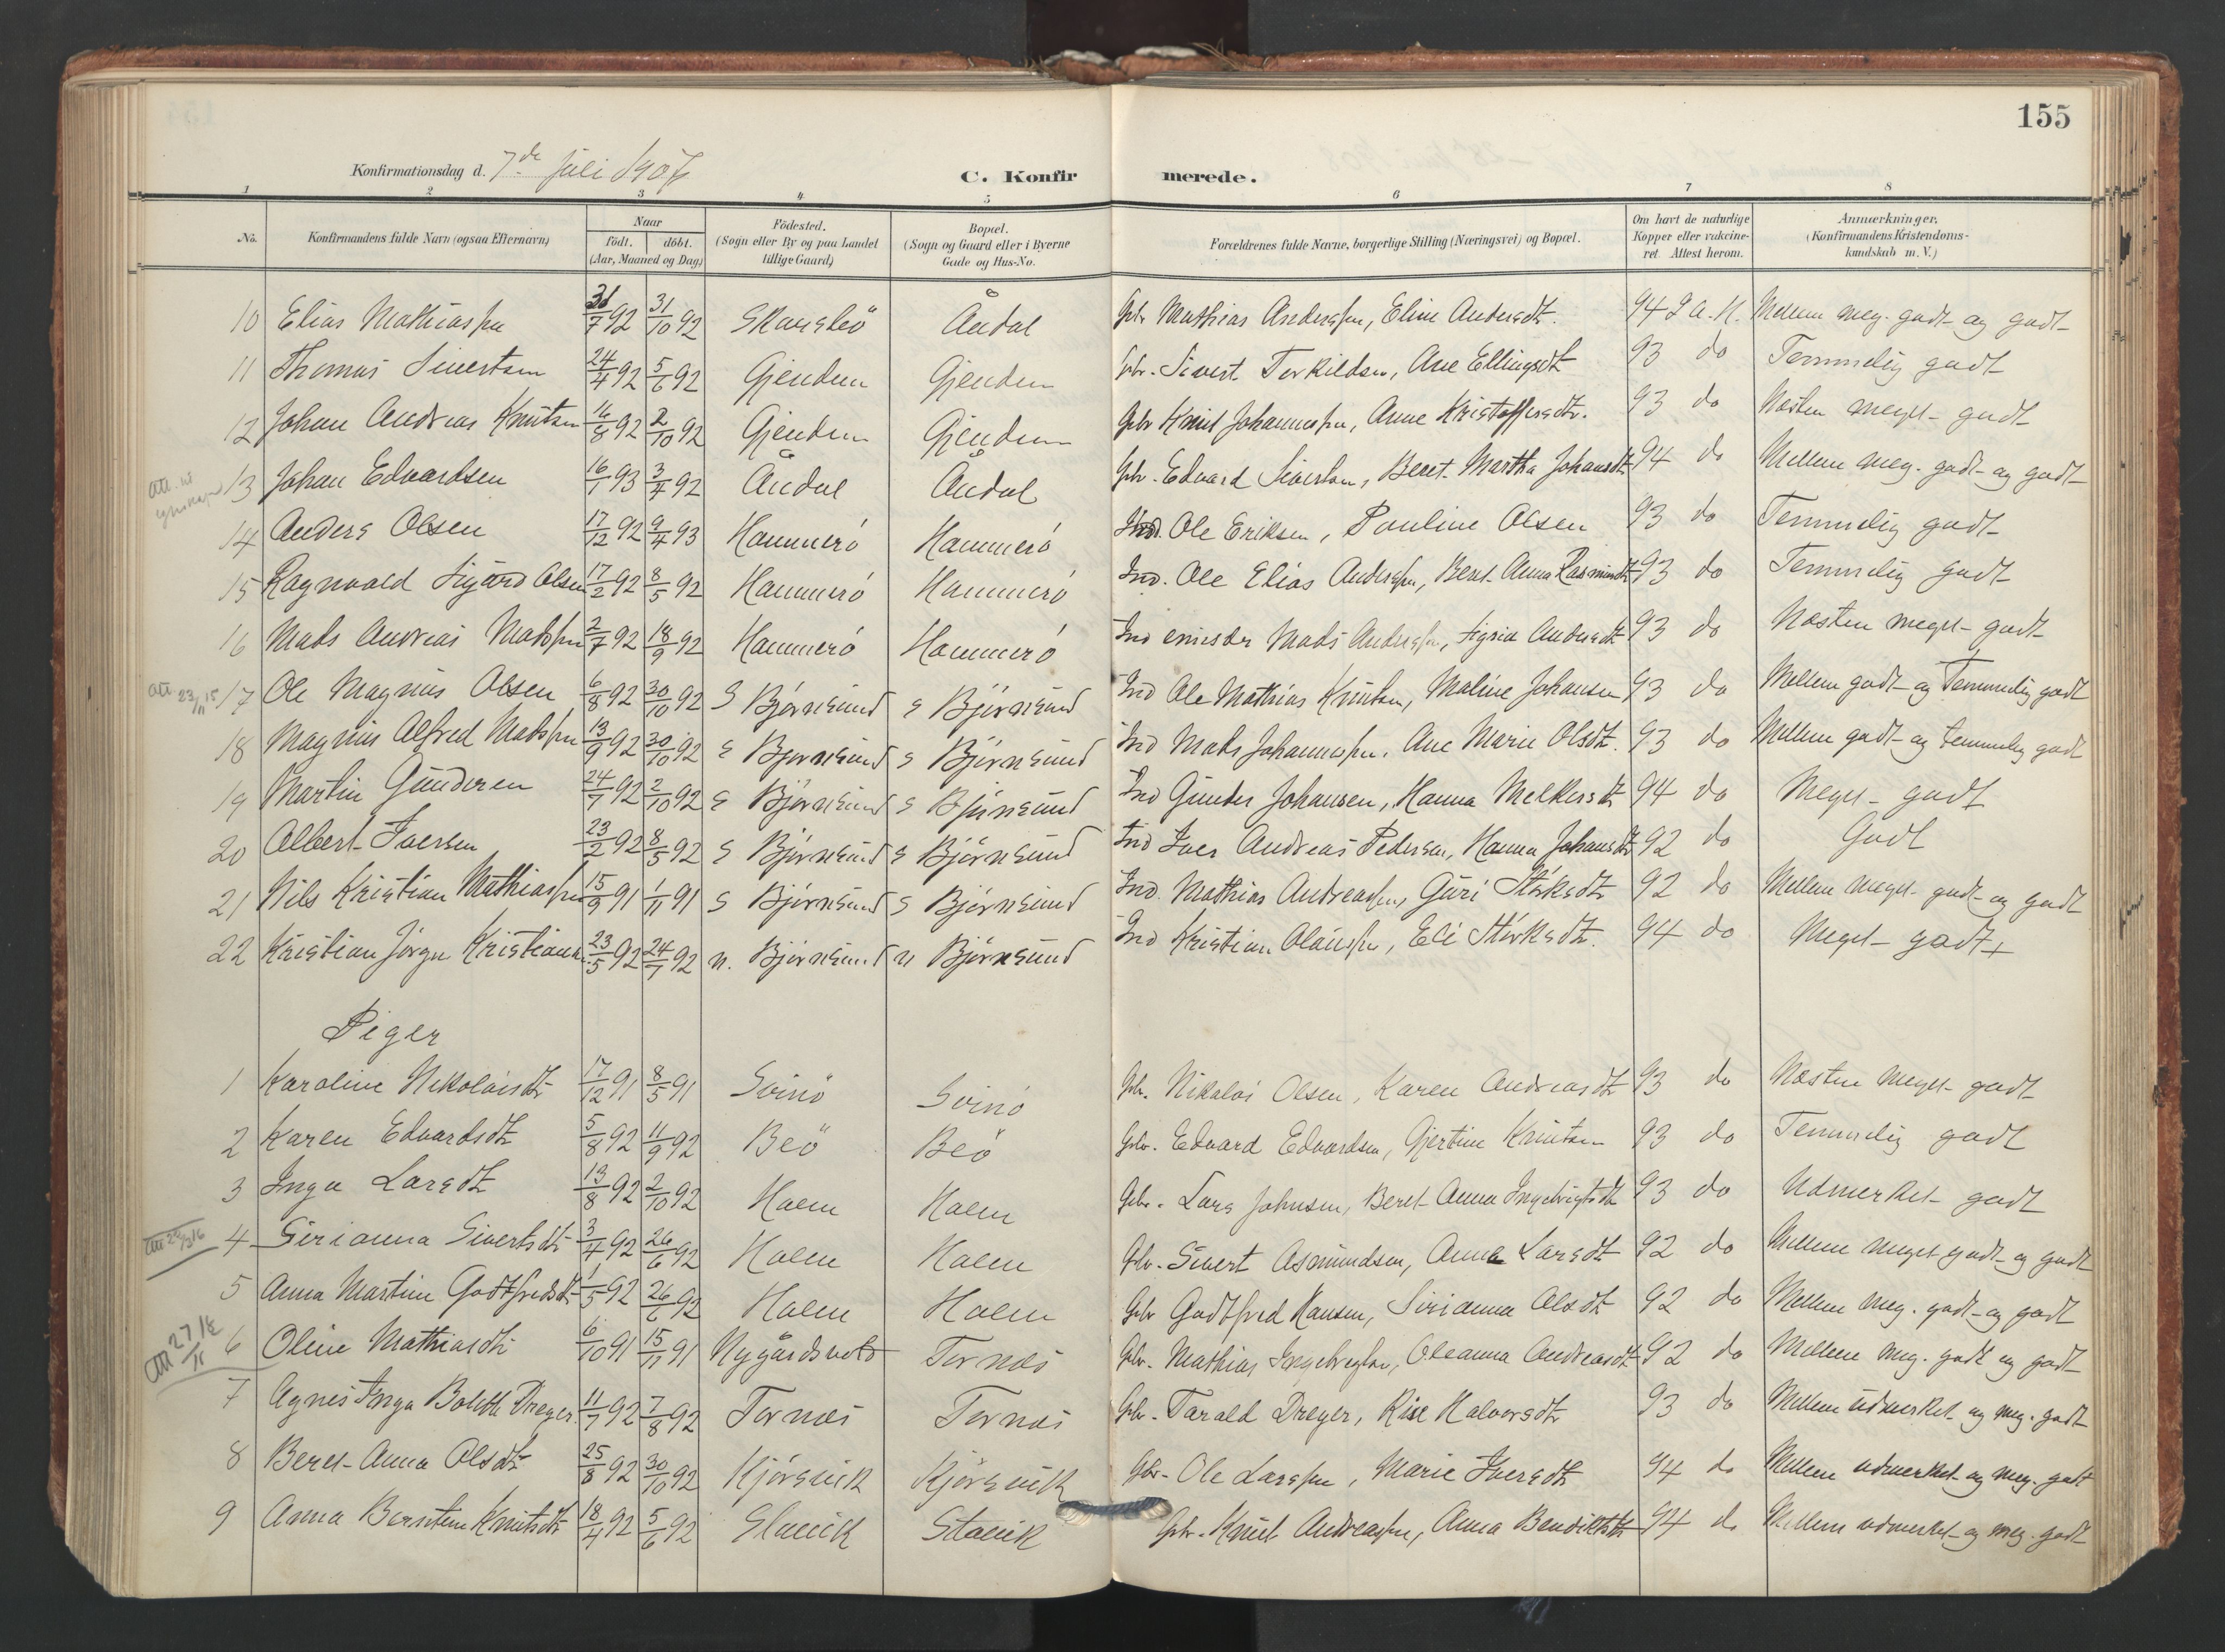 155
Konfirmationsdag d. 7de juli 1907
C. Konfirmerede.
1 2 3 4 5 6 7 8
No. Konfirmandens fulde Navn (ogsaa Efternavn) Naar født. døbt. (Aar, Maaned og Dag) Fødested. (Sogn eller By og paa Landet tillige Gaard) Bopæl. (Sogn og Gaard eller i Byerne Gade og Hus-No. Forældrenes fulde Navne, borgerlige Stilling (Næringsvei) og Bopæl. Om havt de naturlige Kopper eller vakcineret. Attest herom. Anmærkninger. (Konfirmandens Kristendomskundskab m. V.)
10 Elias Mathiassen 31/7 92 31/10 92 Åndal Gbr. Mathias Anderssen, Eline Andersdtr. 94 Mellem meg. godt og godt
11 Thomas Sivertsen 24/4 92 5/6 92 Gjendem Gjendem Gbr. Sivert Terkildsen, Ane Ellingsdtr 93 do Temmelig godt
12 Johan Andreas Knutsen 16/8 92 2/10 92 Gjendem Gjendem Gbr Knut Johannessen, Anne Kristoffersdtr. 93 do Næsten meget godt
13 Johan Edvardsen 16/1 93 3/4 92 Åndal Åndal Gbr. Edvard Sivertsen, Beret Martha Johansdtr 94 do Mellem meg. godt og godt
14 Anders Olsen 17/12 92 9/4 93 Hammerö Hammerö Ind. Ole Eriksen, Pauline Olsen 93 do Temmelig godt
15 Ragnvald Sigurd Olsen 17/2 92 8/5 92 Hammerö Hammerö Ind. Ole Elias Anderssen, Beret Anna Rasmusdtr 93 do Temmelig godt
16 Mads Andreas Madssen 2/7 92 18/9 92 Hammerö Hammerö Ind Mads Anderssen, Andersdtr 93 do Næsten meget godt
att. 23/11 15 17 Ole Magnus Olsen 6/8 92 30/10 92 S Björnsund S Björnsund Ind Ole Mathias Knutsen, Maline Johansen 93 do Mellem godt og Temmelig godt
18 Magnus Alfred Madssen 13/9 92 30/10 92 S Björnsund S Björnsund Ind Mads Johannessen, Ane Marie Olsdtr. 93 do Mellem godt og temmelig godt
19 Martin Gundersen 24/7 92 2/10 92 S Björnsund S Björnsund Ind Gunder Johansen, Hanna Melkersdtr 94 do Meget godt
20 Albert Iversen 23/2 92 8/5 92 S Björnsund S Björnsund Ind Iver Andreas Pedersen, Hanna Johansdtr 92 do Godt
21 Nils Kristian Mathiassen 15/9 91 1/11 91 S Björnsund S Björnsund Ind. Mathias Andreassen, Guri Störksdtr 92 do Mellem meget godt og godt
22 Kristian Jörgen Kristians. 23/5 92 24/7 92 n. Björnsund n Björnsund Ind Kristian Olaussen, Eli Störksdtr. 94 do Meget godt +
Piger
1 Karoline Nikolaisdtr 17/12 91 8/5 91 Svinö Svinö Gbr. Nikolai Olsen, Karen Andreasdtr 93 do Næsten meget godt
2 Karen Edvardsdtr 5/8 92 11/9 92 Beö Beö Gbr. Edvard Edvardsen, Gjertine Knutsen 93 do Temmelig godt
3 Inga Larsdtr 13/8 92 2/10 92 Holm Holm Gbr. Lars Johnsen, Beret Anna Ingebrigtsdtr 93 do Udmerket godt
4 Sirianna Sivertsdtr 3/4 92 26/6 92 Holm Holm Gbr. Sivert Asmundsen, Anna Larsdtr 92 do Mellem meget godt og godt
5 Anna Martine Godtfredsdtr 1/5 92 26/6 92 Holm Holm Gbr Godtfred Hansen, Sirianna Olsdtr 92 do Mellem meg. godt og godt
6 Oline Mathiasdtr 6/10 91 15/11 91 Nygårdsvold Tornes Gbr. Mathias Ingebrigtsen, Oleanna Andreasdtr 92 do Mellem meg. godt og godt
7 Agnes Inga Bolette Dreyer 11/7 92 7/8 92 Tornes Tornes Gbr. Tarald Dreyer, Halvorsdtr 93 do Mellem udmerket og meg. godt
8 Beret Anna Olsdtr 25/8 92 30/10 92 Kjörsvik Kjörsvik Gbr. Ole Larssen, Marie Iversdtr 94 do Mellem udmerket og meg. godt
9 Anna Berntine Knutsdtr 18/4 92 5/6 92 Stavik Stavik Gbr. Knut Andreassen, Anna Bendiktsdtr 94 do Mellem udmerket og meg. godt